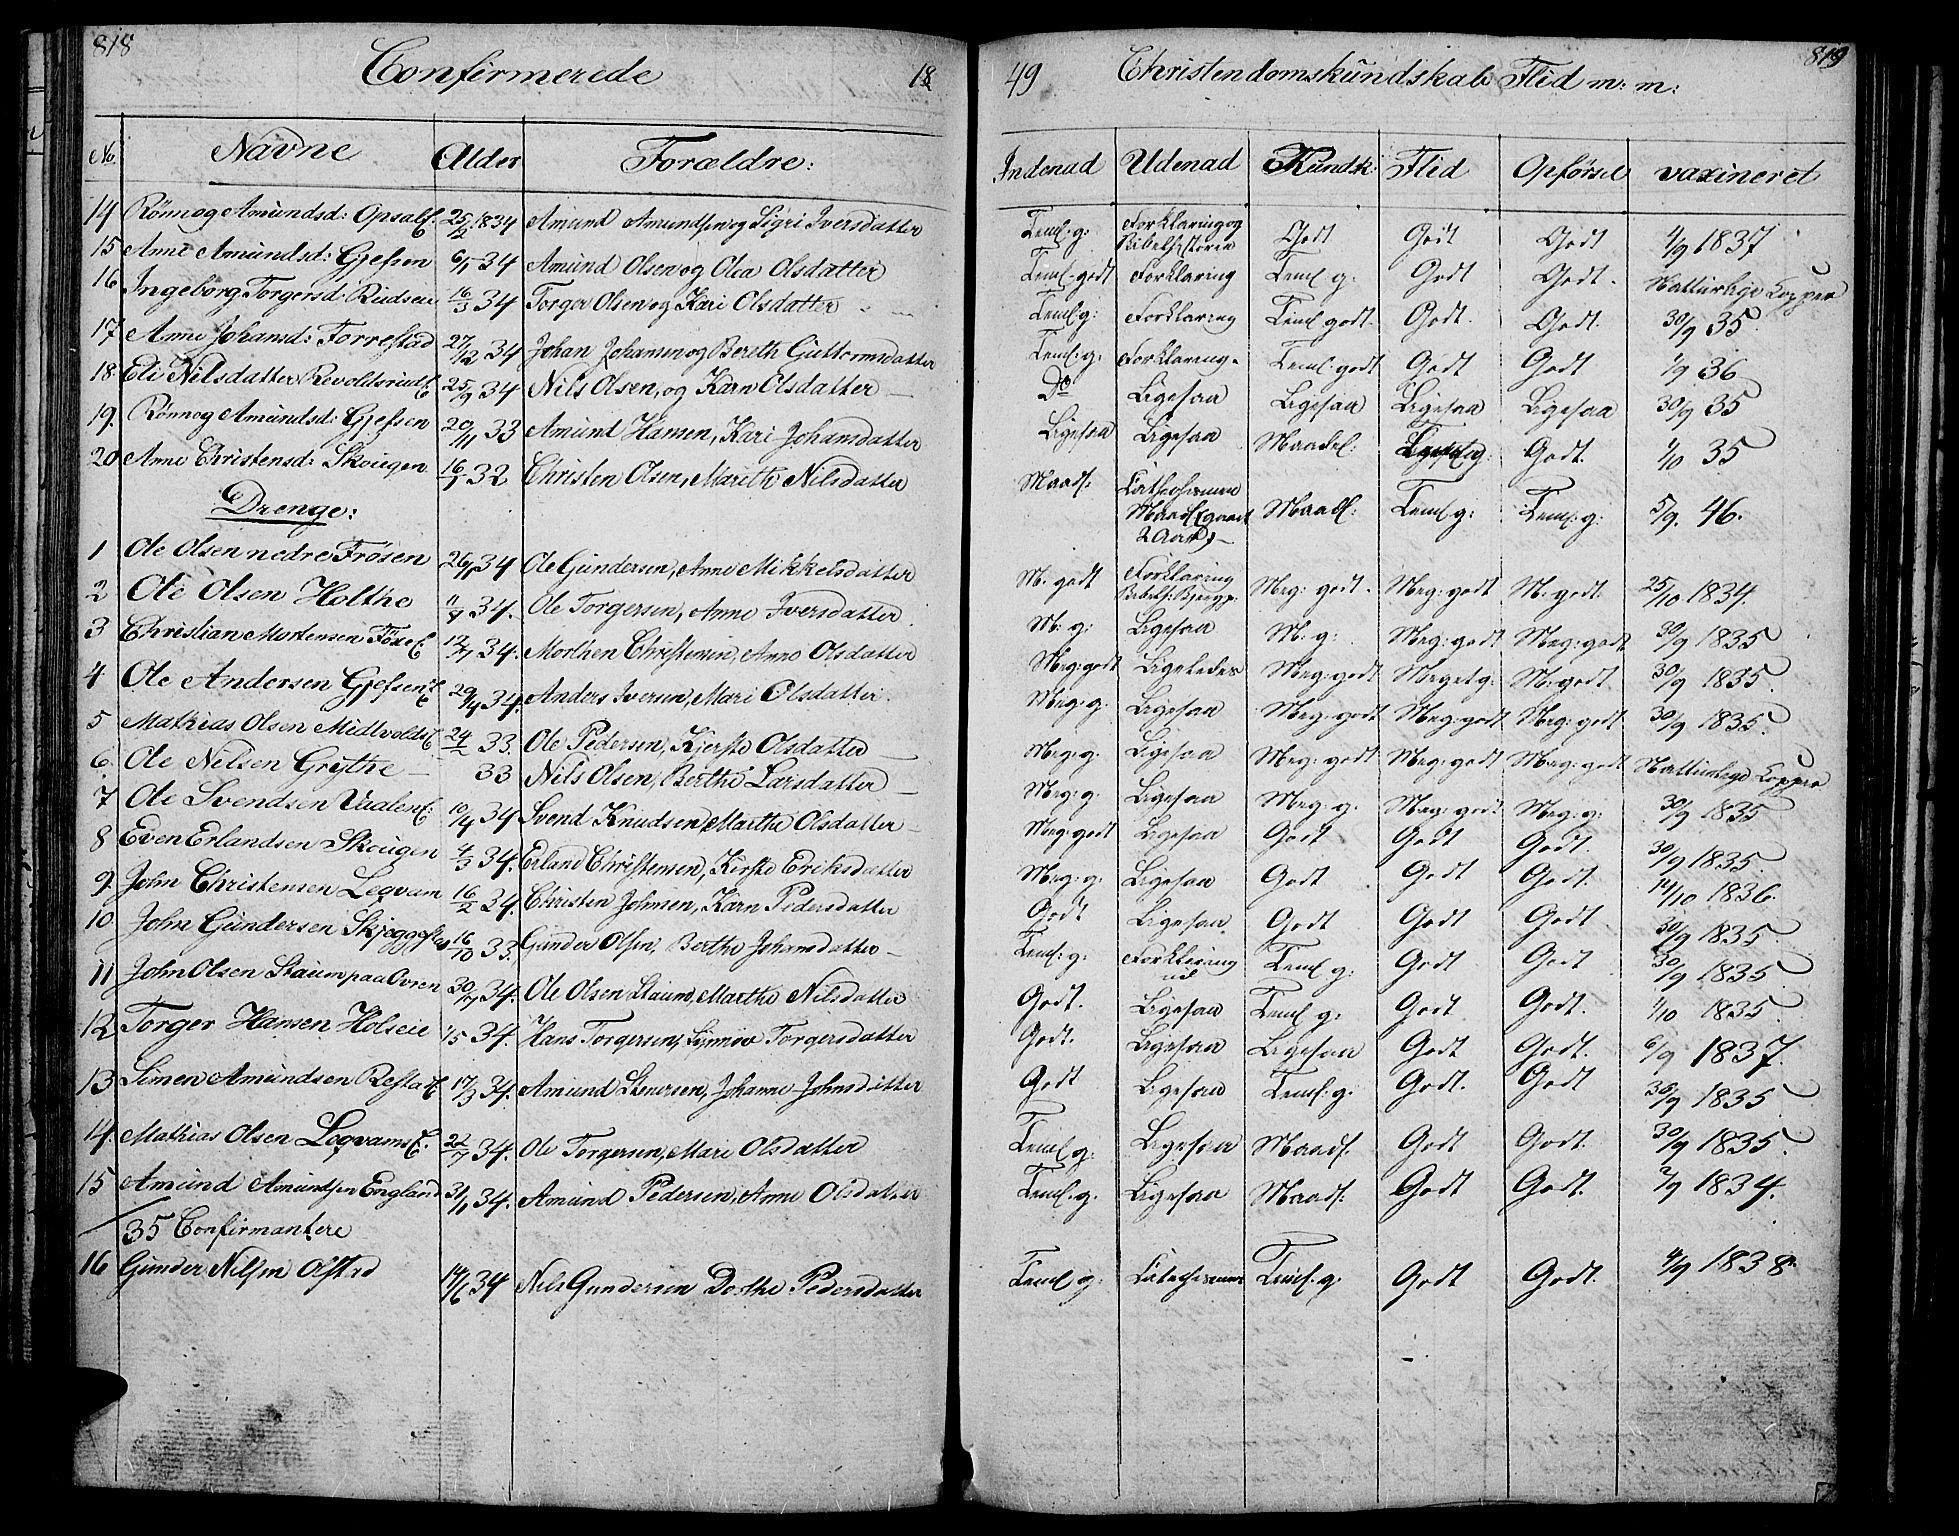 818
Confirmerede 18
No. Navne Alder Forældre:
14 Rönnog Amundsd: Opsal 25/2 1834 Amund Amundsen og Sigri Iversdatter
15 Anne Amundsd: Gjefsen 6/1 34 Amund Olsen og Olea Olsdatter
16 Ingeborg Torgersd: Rudseie 16/3 34 Torger Olsen og Kari Olsdatter
17 Anne Johansd: Forrestad 27/12 34 Johan Johansen og Bereth Guttormsdatter
18. Eli Nilsdatter Revoldsrud 25/9 34 Nils Olsen, og Karn Olsdatter
19. Rönnog Amundsd: Gjefsen 20/11 33 Amund Hansen, Kari Johansdatter
20 Anne Christensd: Skougen 16/1 32 Christen Olsen, Marith Nilsdatter
Drenge:
1 Ole Olsen nedre Frösen 34 Ole Gundersen, Anne Mikkelsdatter
2 Ole Olsen Holthe 34. Ole Torgersen, Anne Iversdatter
3 Christian Mortensen 34. Morthen Christensen, Anne Olsdatter
4 Ole Andersen Gjefsen 29/4 34. Anders Iversen, Mari Olsdatter.
5 Mathias Olsen Midtvolds 33. Ole Pedersen, Kjersto Olsdatter
6. Ole Nilsen Grythe 33 Nils Olsen, Berthe Larsdatter
7 Ole Svendsen Vaalen 10/4 34 Svend Knudsen, Marthe Olsdatter
8 Even Erlandsen Skougen 4/3 34. Erland Christensen, Kirsto Eriksdatter
9. John Christensen Leqvam 16/2 34. Christen Johnsen, Karn Pedersdatter
10 John Gundersen Skjeggestad 16/10 33. Gunder Olsen, Berthe Johansdatter
11 John Olsen Staum paa Ovren 30/7 34. Ole Olsen Staum, Marthe Nilsdatter
12 Torger Hansen Holseie 1/5 34. Hans Torgersen, Sirmöv Torgersdatter
13 Simen Amundsen 17/3 34. Amund Stenersen, Johanne Johnsdatter
14. Mathias Olsen Leqvams 22/7 34. Ole Torgersen, Mari Olsdatter
15 Amund Amundsen England 31/1 34. Amund Pedersen, Anne Olsdatter
35 Confirmantere
16 Gunder Nilsen Olstad 14/6 34 Nils Gundersen Dorthe Pedersdatter
819
49 Christendomskundskab Flid m: m:
Indenad Udenad Kundsk: Flid Opförsel vaxineret
Teml: g: Forklaring og Bibelhistorie Godt Godt Godt 4/9 1837
Teml: godt Forklaring Teml: g. Godt Godt. Natturlige Kopper
Teml: g: Forklaring Teml: godt. Godt. Godt. 30/9 35
Teml: g. Forklaring. Teml: godt Godt Godt 1/9 36
Do Ligesaa Ligesaa Ligesaa Ligesaa 30/9 35
Ligesaa Ligesaa Maadel: Godt. 1/10 35
Maadl: Cathechismen Maadl: Teml: g: Teml: g: 5/9. 46.
2 Aar
M. godt Forklaring Meg: godt. Meg: godt M. godt. 25/10 1834.
M: g: Ligesaa M: g: Meg: godt Meg: godt 30/9 1835
Meg: godt Ligeledes Meg: godt Meget g: M: godt. 30/9 1835.
Meg: g. Ligesaa Meg: godt Meg: godt Meg: godt. 30/9 1835.
Meg: g. Ligesaa Meg: godt Meg: godt Meg: godt Natturlige Kopper
Meg: g. Ligesaa Meg. g. Meg: godt Meg: g: 30/9 1835
Meg: godt Ligesaa Godt Godt Godt. 30/9 1835.
Meg: g. Ligesaa Godt Godt Godt. 14/10 1836.
Godt Ligesaa Godt Godt Godt 30/9 1835.
Teml: g. Forklaring Teml: g. Godt Godt 30/9 1835
Godt. Ligesaa Teml: g. Godt Godt. 1/10 1835.
Godt. Ligesaa Ligesaa Godt Godt. 6/9 1837.
Godt Ligesaa Teml: g. Godt. Godt 30/9 1835
Teml: g. Ligesaa Maadl. Godt Godt. 30/9 1835
Teml: g. Ligesaa Maadl: Godt Godt. 2/9 1834.
Teml: g. Catechismen Teml: g. Godt Godt. 4/9 1838.